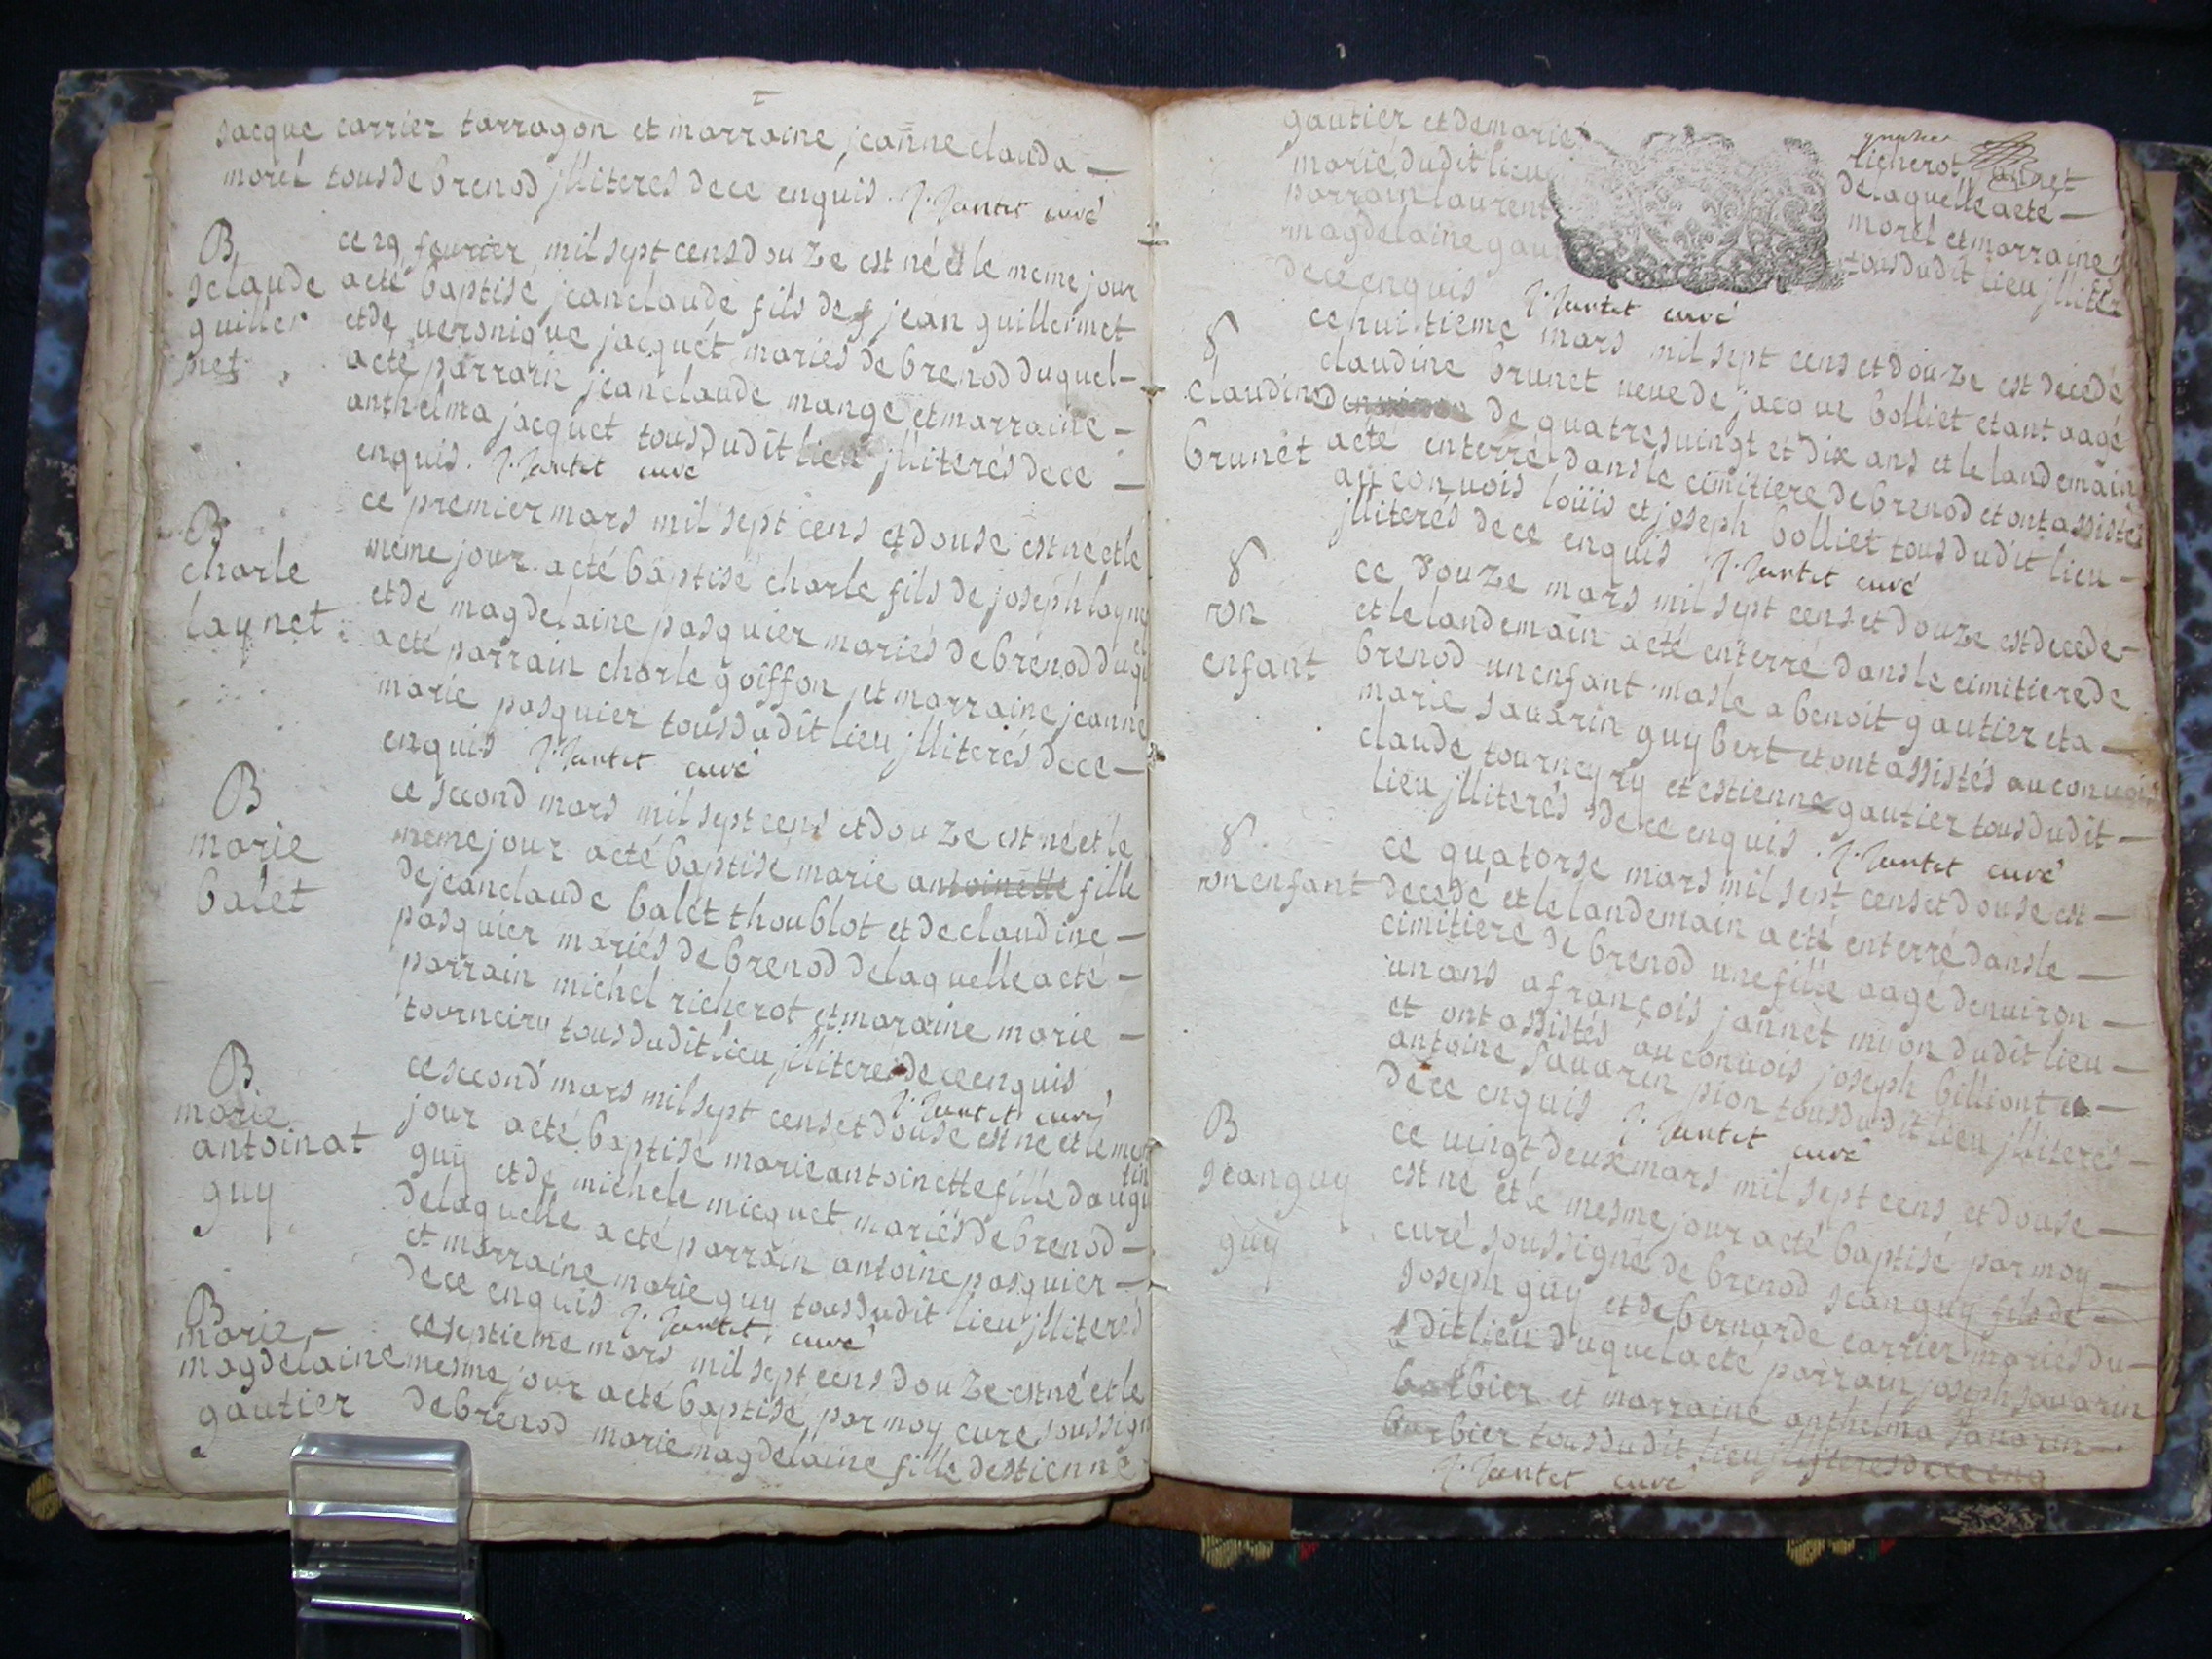 Jacque carrier tarragon et marraine jeanne clauda
morel tous de brenod jlliteres de ce enquis. J. Jantet curé
B
Jclaude
guiller
met
ce 29 feurier mil sept cens douze est né et le meme jour
acté baptisé jean claude fils de jean guillermet
et de ueronique jacquet mariés de brenod duquel
acté parrain jean claude mange et marraine
anthelma jacquet tous dudit lieu jlliterés de ce
enquis. J. Jantet curé
B
charle
laynet
ce premier mars mil sept cens et douse est ne et le
meme jour acté baptisé charle fils de joseph layne
et de magdelaine pasquier mariés de brenod duqu
el
acté parrain charle goiffon et marraine jeanne
marie pasquier tous dudit lieu jlliterés de ce
enquis J. Jantet curé
B
marie
balet
ce second mars mil sept cens et douze est né et le
meme jour acté baptisé marie antoinette fille
de jean claude balet thoublot et de claudine
pasquier mariés de brenod de laquelle acté
parrain michel richerot et maraine marie
tourneiru tous dudit lieu jlliterés de ce enquis
J. Jantet curé
B
marie
antoinat
guy
ce second mars mil sept cens et douse est né et le mem
jour acté baptisé marie antoinette fille daugu
tin
guy et de michele micquet mariés de brenod
de laquelle acté parrain antoine pasquier
et marraine marie guy tous dudit lieu jlliterés
de ce enquis J. Jantet curé
B
marie
magdelaine
gautier
ce septieme mars mil sept cens douze est né et le
mesme jour acté baptisé par moy curé soussign
de brenod marie magdelaine fille destienne
gautier et de marie richerot
marié dudit lieu de laquelle acté
parrain laurent morel et marraine
magdelaine gau tous dudit lieu jlliter
de ce enquis J. Jantet curé
8
claudine
brunet
ce huitieme mars mil sept cens et douze est decedé
claudine brunet ueue de jacque bolliet etant aagé
de quatresuingt et dix ans et le landemain
acté enterré dans le cimitiere de brenod et ont assistés
au conuois loüis et joseph bolliet tous dudit lieu
jlliterés de ce enquis J. Jantet curé
8
vn
enfant
ce douze mars mil sept cens et douze est decedé
et le landemain acté enterré dans le cimitiere de
brenod un enfant masle a benoit gautier et a
marie sauarin guybert et ont assistés au conuois
claude tourneyry et estienne gautier tous dudit
lieu jlliterés de ce enquis. J. Jantet curé
8
vn enfant
ce quatorse mars mil sept cens et douse est
decedé et le landemain acté enterré dans le
cimitiere de brenod une fille aagé denuiron
un ans a françois jannet mion dudit lieu
et ont assistés au conuois joseph billiont et
antoine sauarin pion tous dudit lieu jlliterés
de ce enquis J. Jantet curé
B
Jean guy
guy
ce uingt deux mars mil sept cens et douse
est né et le mesme jour acté baptisé par moy
curé soussigné de brenod Jean guy fils de
Joseph guy et de bernarde carrier mariés du
dit lieu duquel acté parrain joseph sauarin
barbier et marraine anthelma sauarin
barbier tous dudit lieu jlliterés de ce enq
J. Jantet curé